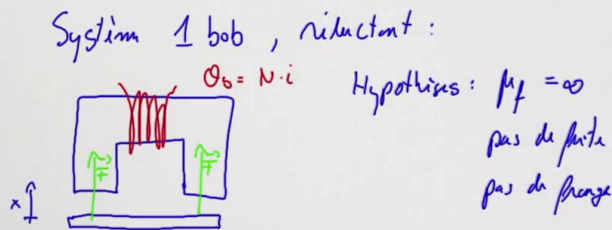 Système 1 bob, réluctant :
Θb = N·i
Hypothèses : μf = ∞
pas de fuite
pas de frange
F
F
x